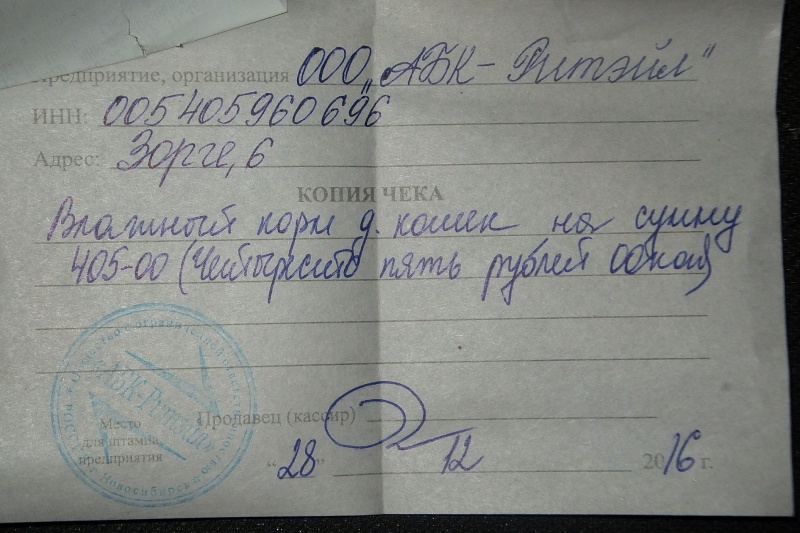 Предприятие, организация ООО „АБК-Ритэйл"
ИНН: 005405960696
Адрес: Зорге, 6
КОПИЯ ЧЕКА
Влажный корм д. кошек на сумму
405-00 (Четыреста пять рублей 00коп)
Продавец (кассир)
Место
для штампа
предприятия
"28" 12 2016 г.
АБК-Ритэйл
Общество с ограниченной ответственностью
г. Новосибирск